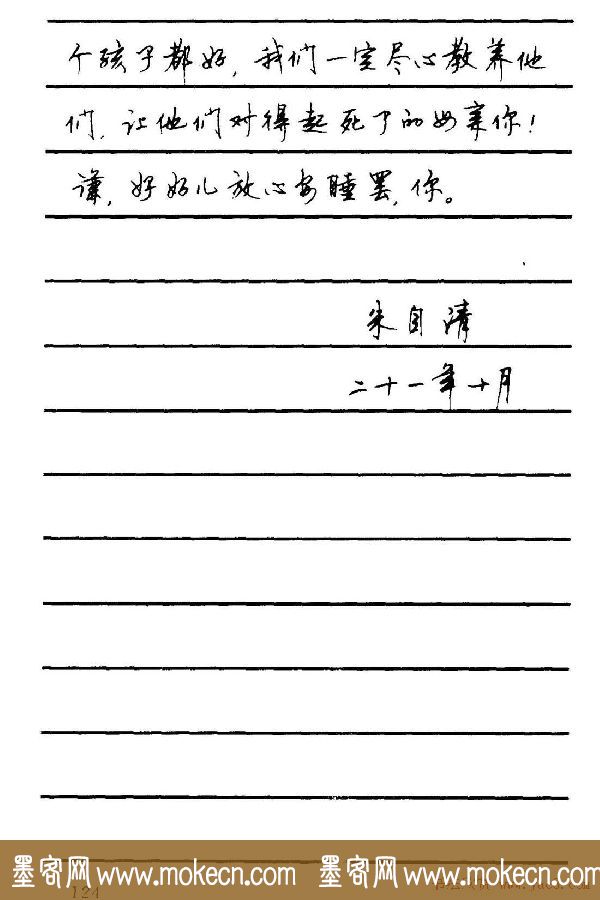 个孩子都好，我们一定尽心教养他
们，让他们对得起死了的母亲你！
谦，好好儿放心安睡罢，你。
朱自清
二十一年十月
墨客网 www.mokecn.com 墨客网 www.mokecn.com
124